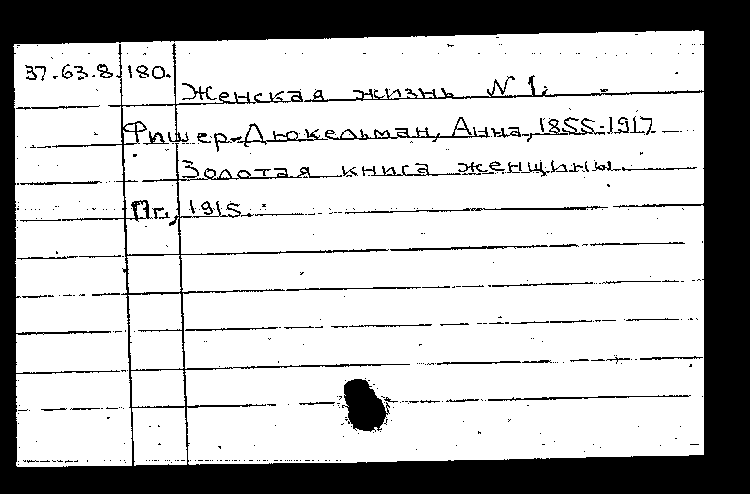 37.63.8.180.
Женская жизнь N 1.
Фишер-Дюкельман, Анна, 1855-1917
Золотая книга женщины.
Пг., 1915.